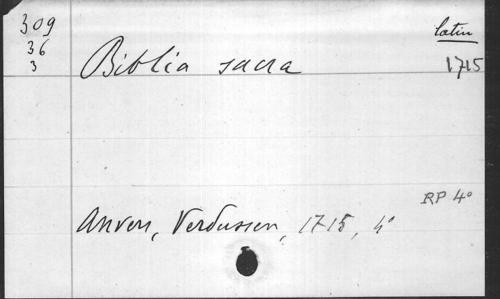 309 latin
36
3 Biblia sacra 1715
RP 4°
Anvers, Verdussen, 1715, 4°